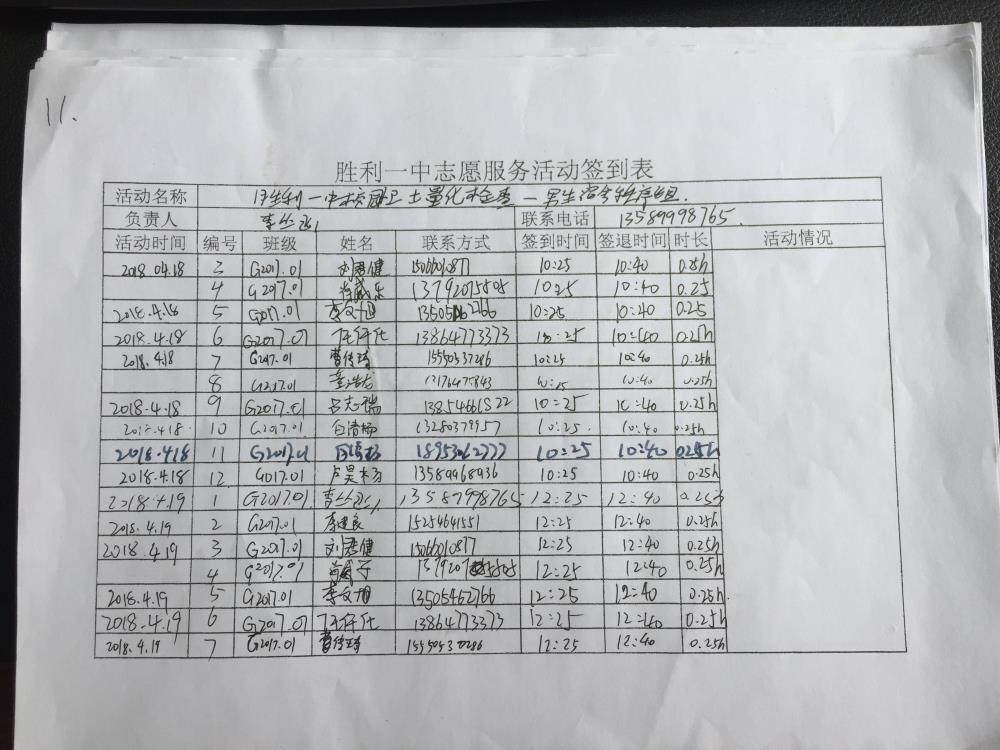 11.
胜利一中志愿服务活动签到表
活动名称 胜利一中校园卫士量化检查—男生宿舍秩序组.
负责人 李丛 联系电话 13589998765.
活动时间 编号 班级 姓名 联系方式 签到时间 签退时间 时长 活动情况
2018.04.18 3 G2017.01 刘君健 15066010877 10:25 10:40 0.25h
4 G2017.01 13792075805 10:25 10:40 0.25
2018.4.18 5 G2017.01 李文旭 13505462766 10:25 10:40 0.25
2018.4.18 6 G2017.01 任仟仕 13864773373 10:25 10:40 0.25h
2018.4.18 7 G2017.01 曹传琦 15550537286 10:25 10:40 0.25h
8 G2017.01 董浩 10:25 10:40 0.25h
2018.4.18 9 G2017.01 吕志瑞 13854661522 10:25 10:40 0.25h
2018.4.18 10 G2017.01 白清杨 13280379957 10:25. 10:40 0.25h
2018.4.18 11 G2017.01 18953062777 10:25 10:40 0.25h
2018.4.18 12 G2017.01 卢昊 13589968936 10:25 10:40 0.25h
2018.4.19 1 G2017.01 李丛 13589998765 12:25 12:40 0.25h
2018.4.19 2 G2017.01 李建良 15254641551 12:25 12:40 0.25h
2018.4.19 3 G2017.01 刘君健 15066010877 12:25 12:40 0.25h
4 G2017.01 12:25 12:40 0.25h
2018.4.19 5 G2017.01 李文旭 13505462766 12:25 12:40 0.25h
2018.4.19 6 G2017.01 任仟仕 13864773373 12:25 12:40 0.25h
2018.4.19 7 G2017.01 曹传琦 15550537286 12:25 12:40 0.25h